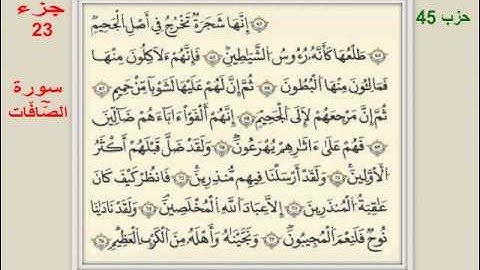 جزء
23
حزب 45
سورة
الصافات
إِنَّهَا شَجَرَةٌ تَخْرُجُ فِي أَصْلِ الْجَحِيمِ
طَلْعُهَا كَأَنَّهُ رُءُوسُ الشَّيَاطِينِ فَإِنَّهُمْ لَآكِلُونَ مِنْهَا
فَمَالِئُونَ مِنْهَا الْبُطُونَ ثُمَّ إِنَّ لَهُمْ عَلَيْهَا لَشَوْبًا مِنْ حَمِيمٍ
ثُمَّ إِنَّ مَرْجِعَهُمْ لَإِلَى الْجَحِيمِ إِنَّهُمْ أَلْفَوْا ءَابَاءَهُمْ ضَالِّينَ
فَهُمْ عَلَى ءَاثَارِهِمْ يُهْرَعُونَ وَلَقَدْ ضَلَّ قَبْلَهُمْ أَكْثَرُ
الْأَوَّلِينَ وَلَقَدْ أَرْسَلْنَا فِيهِمْ مُنْذِرِينَ فَانْظُرْ كَيْفَ كَانَ
عَاقِبَةُ الْمُنْذَرِينَ إِلَّا عِبَادَ اللَّهِ الْمُخْلَصِينَ وَلَقَدْ نَادَانَا
نُوحٌ فَلَنِعْمَ الْمُجِيبُونَ وَنَجَّيْنَاهُ وَأَهْلَهُ مِنَ الْكَرْبِ الْعَظِيمِ